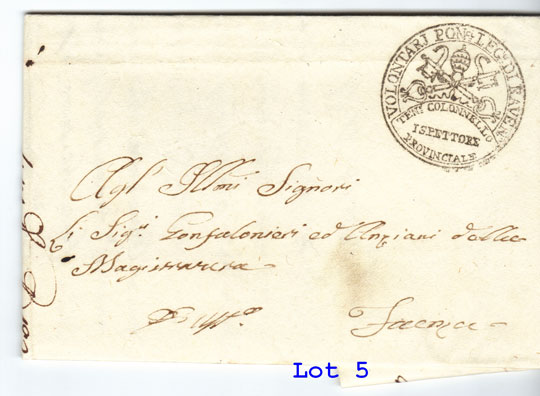 VOLONTARJ PON. LEG. DI RAVENNA
TEN. COLONNELLO
ISPETTORE
PROVINCIALE
Agl' Illmi Signori
Li Sig.i Gonfalonieri ed Anziani della
Magistratura
Faenza
Lot 5